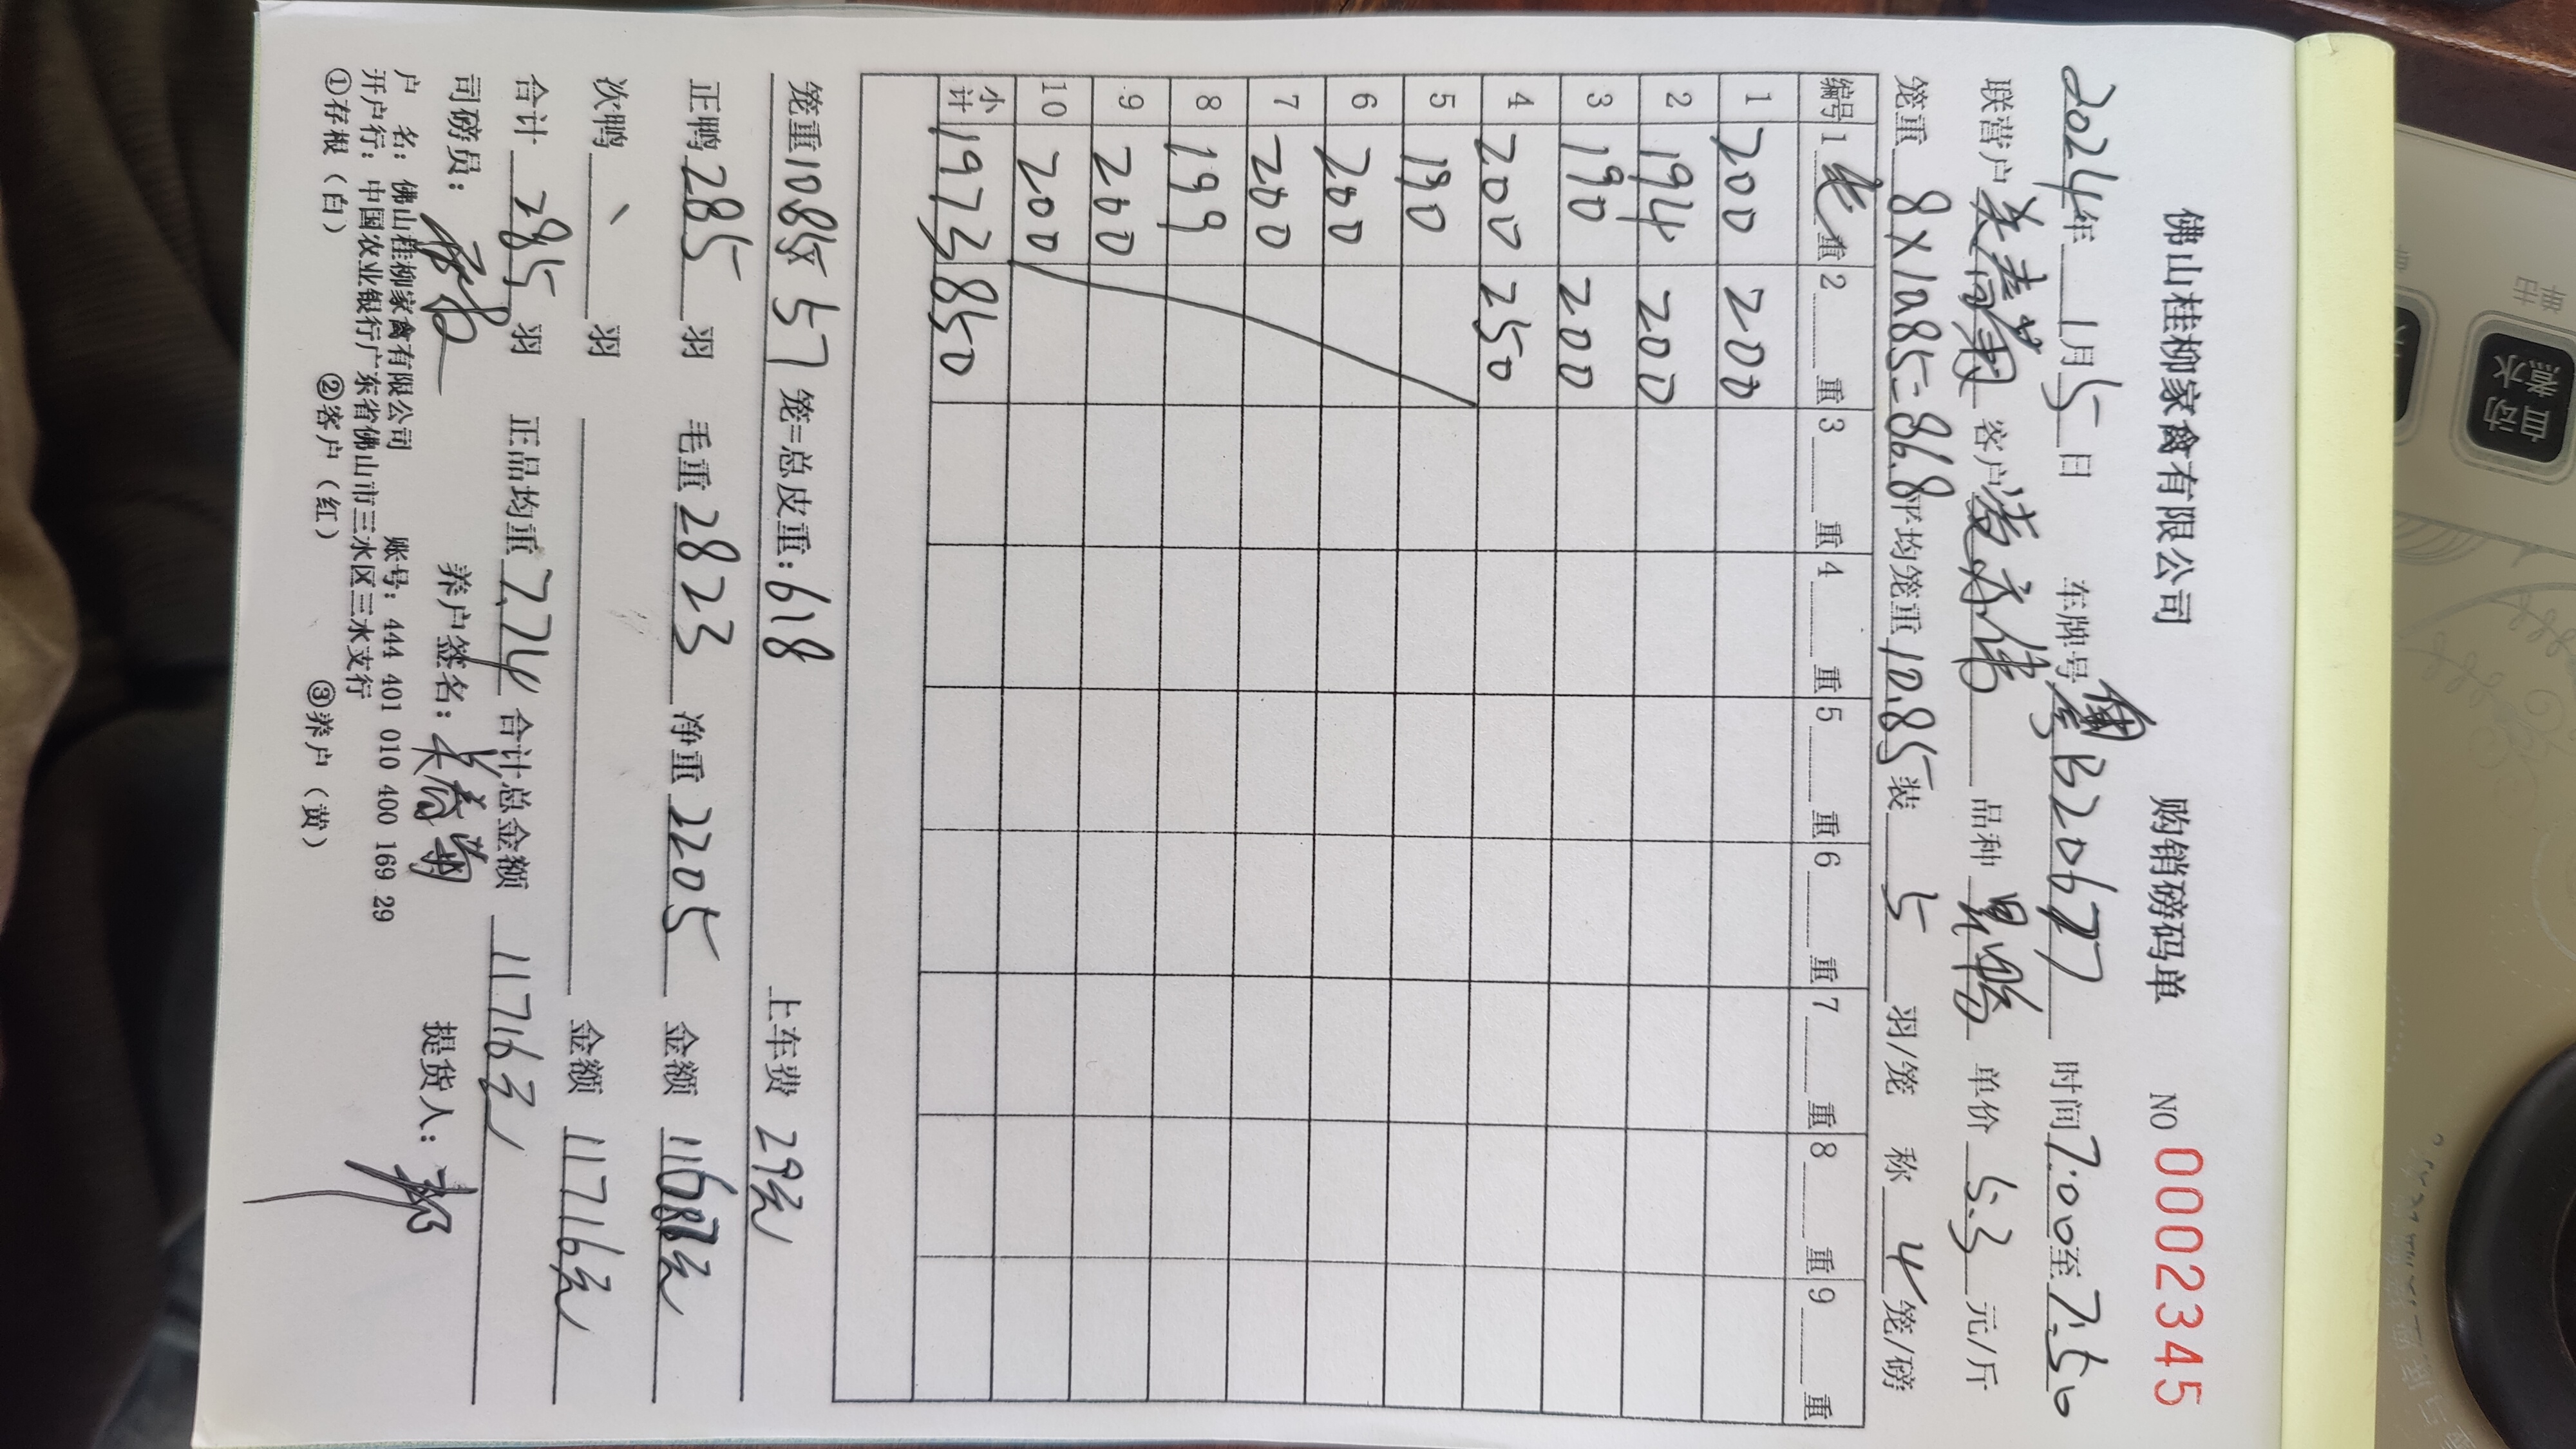 佛山桂柳家禽有限公司 购销磅码单 NO 0002345
2024年1月5日 车牌号 B20677 时间7:00至7:50
联营户 客户 品种 单价5.3元/斤
笼重8×10.85=86.8平均笼重10.85装5羽/笼 称4笼/磅
编号 1毛重 2重 3重 4重 5重 6重 7重 8重 9重
1 200 200
2 194 200
3 190 200
4 200 250
5 190
6 200
7 200
8 199
9 200
10 200
小计 1973 850
笼重10.85× 57笼=总皮重:618 上车费29元
正鸭285羽 毛重2823 净重2205 金额11687元
次鸭 羽 金额11716元
合计285羽 正品均重7.74 合计总金额11716元
司磅员: 养户签名: 提货人:
户 名:佛山桂柳家禽有限公司 账号:444 401 010 400 169 29
开户行:中国农业银行广东省佛山市三水区三水支行
①存根(白) ②客户(红) ③养户(黄)